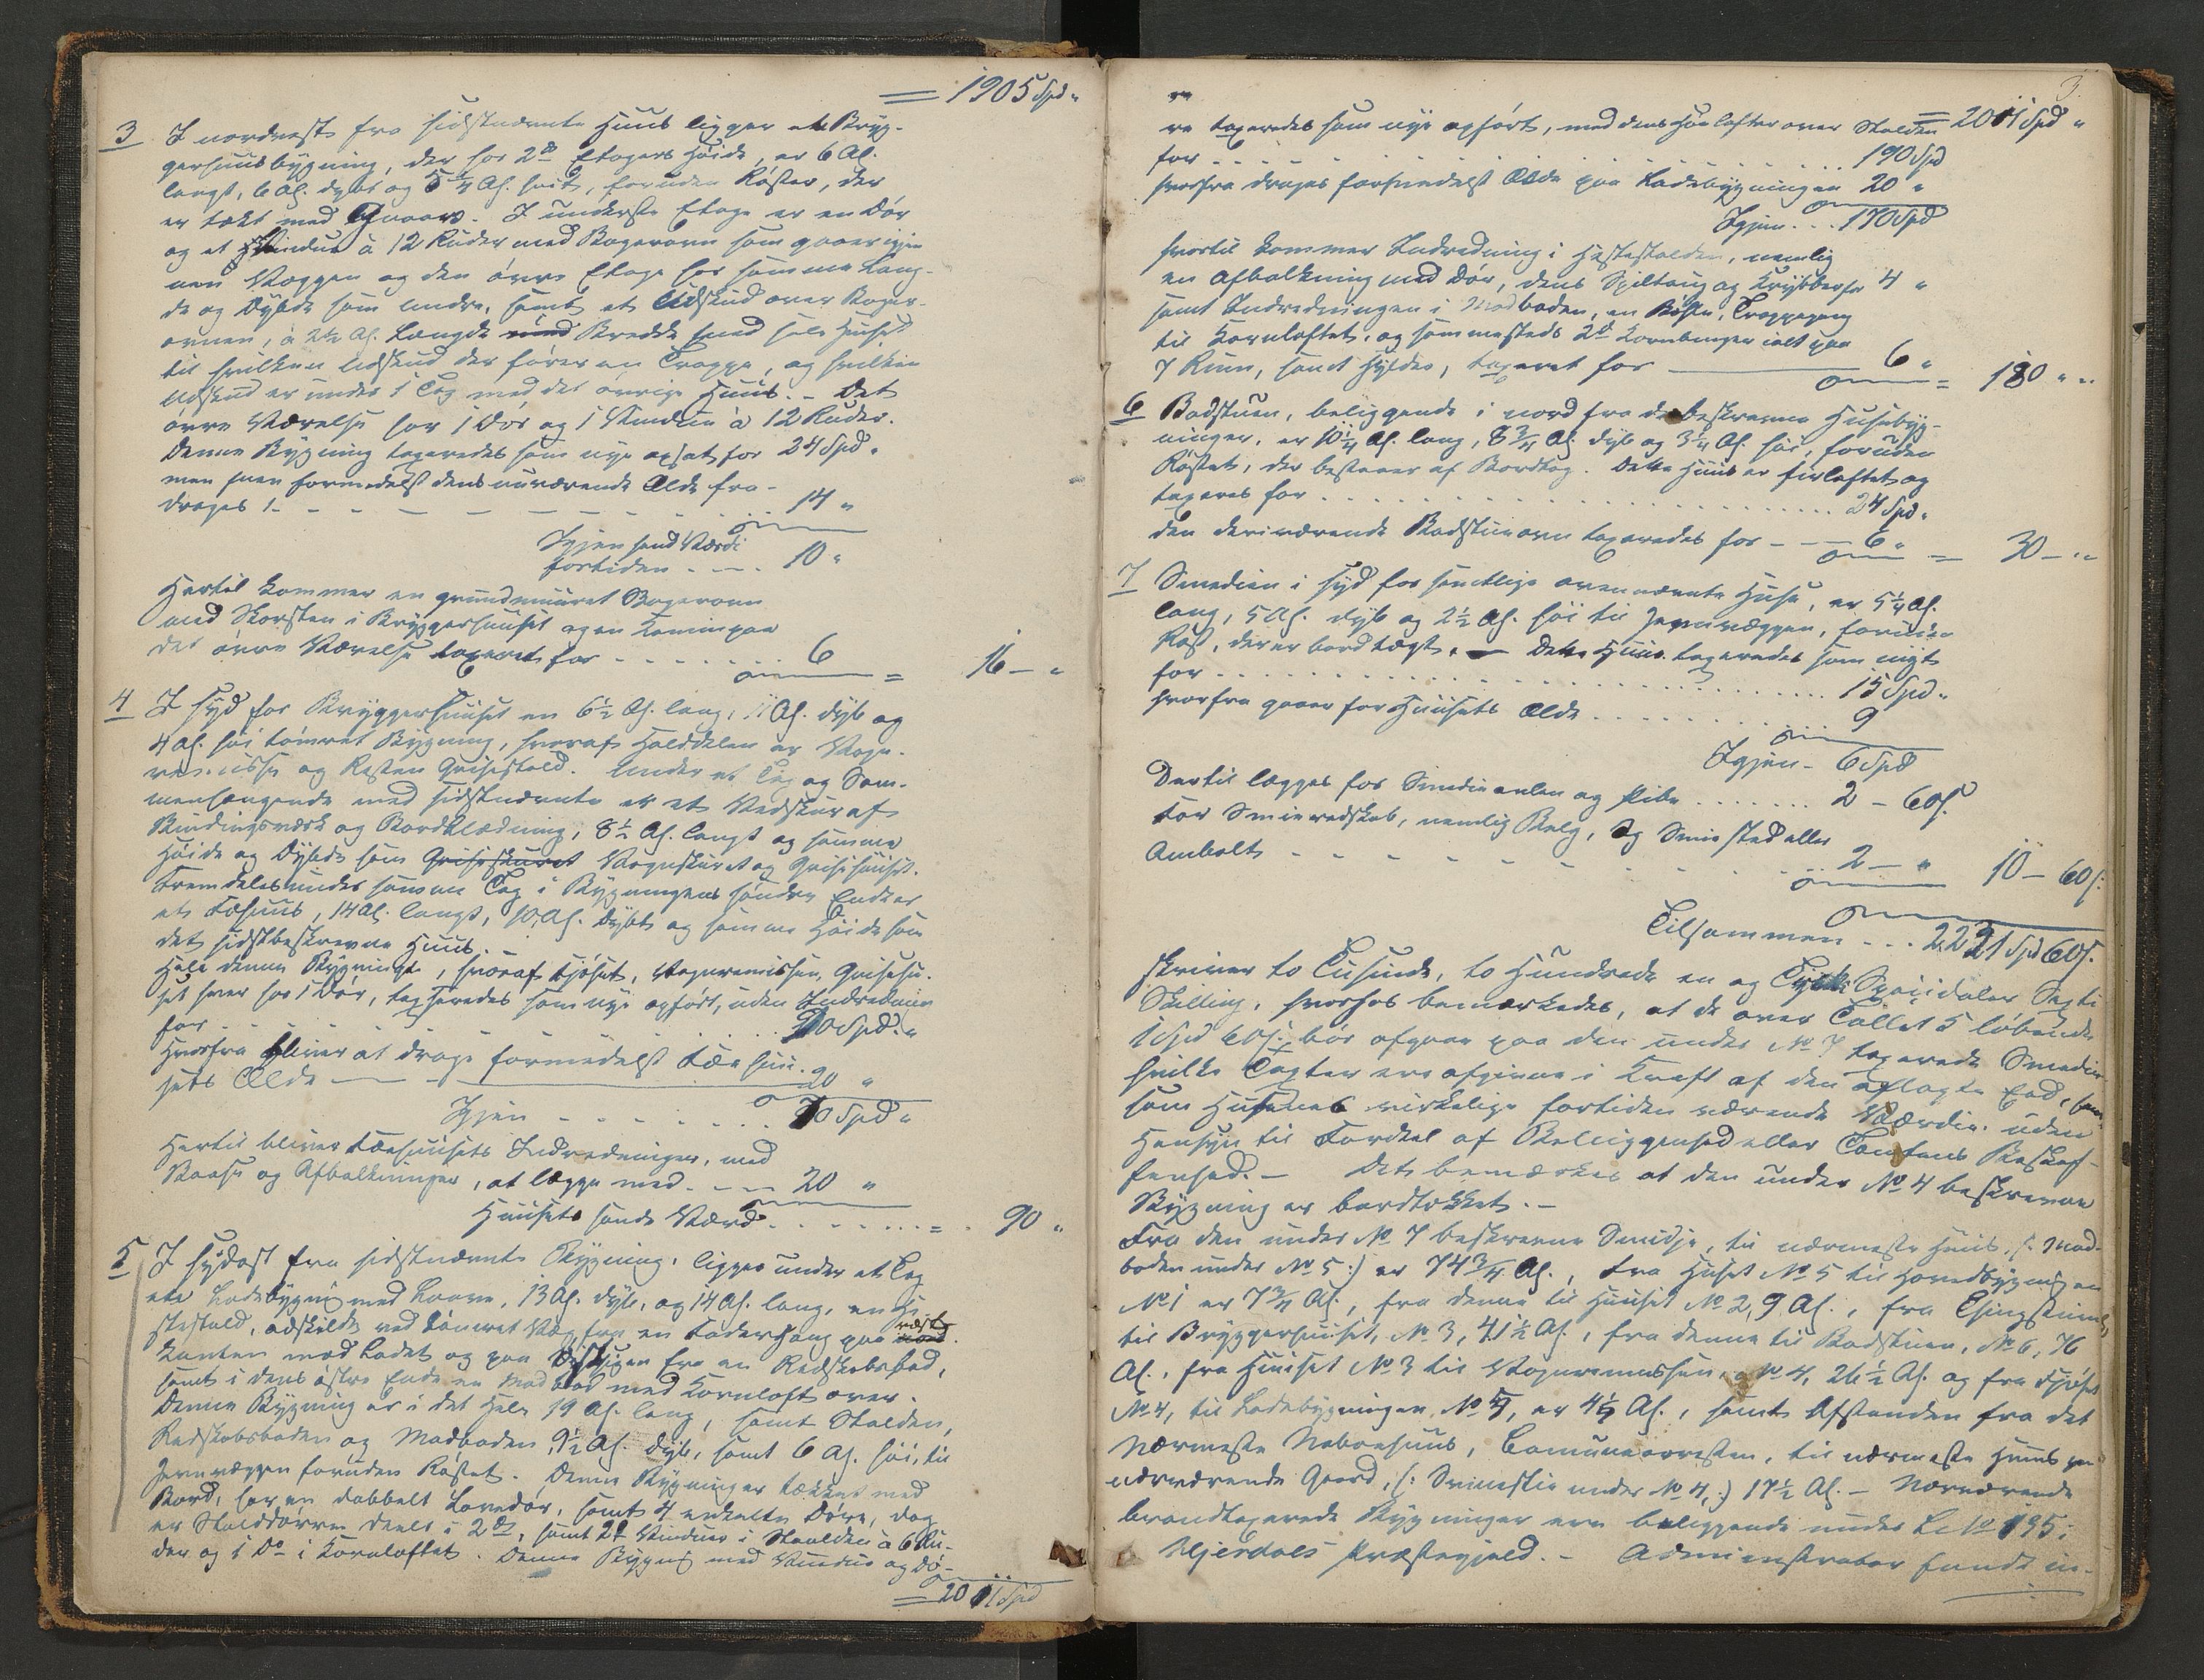 = 1905 Spd "
3 I nordvest fra sidstnævnte Huus ligger et Bryg-
gerhuusbygning, der har 2de Etagers Høide, er 6 Al.
langt, 6 Al. dybt og 5 1/4 Al. høit, foruden Røstet, der
er tækt med . I underste Etage er en Dør
og et Vindue à 12 Ruder med Bagerovn som gaaer igjen
nem Væggen og den øvre Etage har samme Læng-
de og Dybde som undre, samt et Udskud over Bager-
ovnen, à 2 1/2 Al. Længde med Bredde som hele Huset
til hvilken Udskud der fører en Trappe, og hvilken
Udskud er under 1 Tag med det øvrige Huus. - Det
øvre Værelse har 1 Dør og 1 Vindue à 12 Ruder.
Denne Bygning taxeredes som nye opsat for 24 Spd.
men heri formedelst dens nuværende Ælde fra-
drages 14 "
Igjen sand Værdi
fortiden 10 "
Hertil kommer en grundmuuret Bagerovn
med Skorsten i Bryggerhuuset og en Kamin paa
det øvre Værelse taxeret for 6 = 16 - "
4 I syd for Bryggerhuuset en 6 1/2 Al. lang, 11 Al. dyb og
4 Al. høi tømret Bygning, hvoraf Halvdelen er Vogn-
remisse og Resten Grisestald. Under et Tag og Sam-
menhængende med sidstnævnte er et Vedskur af
Bindingsværk og Bordklædning, 8 1/2 Al. langt og samme
Høide og Dybde som Griseskuret Vognskuret og Grisehuuset.
Fremdeles under samme Tag i Bygningens søndre Ende er
et Fæhuus, 14 Al. langt, 10 Al. dybt og samme Høide som
det sidstbeskrevne Huus. -
Hele denne Bygning, hvoraf Fjøset, Vognremissen, Grisehu-
set hver har 1 Dør, taxeredes som nye opført, uden Indredning
for 90 Spd. "
Hvorfra bliver at drage formedelst Fæehuu-
sets Ælde 20 "
Igjen 70 Spd "
Hertil bliver Fæehuusets Indredninger, med
Baase og Afbalkninger, at lægge med 20 "
Huusets sande Værd = 90 "
5 I sydost fra sidstnævnte Bygning, ligger under et Tag
en Ladebygning med Laave, 13 Al. dyb, og 14 Al. lang, en He-
stestald, adskildt ved tømret Væg fra en Fodergang paa nord vest
Kanten mod Ladet og paa fra en Redskabsbod,
samt i dens østre Ende en Madbod med Kornloft over.
Denne Bygning er i det Hele 19 Al. lang, samt Stalden,
Redskabsboden og Madboden, 9 1/2 Al. dyb, samt 6 Al. høi, til
Jevnvæggen foruden Røstet. Denne Bygning er tækket med
Bord, har en dobbelt Laavedør, samt 4 enkelte Døre, dog
er Stalddørren deelt i 2de, samt 2de Vinduer i Stalden à 6 Ru-
der og 1 Do i Kornloftet. Denne Bygning med Vinduer og Dø-
= 2011 Spd
3
re taxeredes som nye opført, med dens Høelofter over Stalden = 2011 Spd "
for 190 Spd
hvorfra drages formedelst Ælde paa Ladebygningen 20 "
Igjen 170 Spd
hvortil kommer Indredning i Hestestalden, nemlig
en Afbalkning med Dør, dens Spiltoug og Krybber for 4 "
samt Indredningen i Madboden, en Trappegang
til Kornloftet, og sammesteds 2de Kornbinger ialt paa
7 Rum, samt Hylder, taxeret for 6 " = 180 " "
6 Badstuen, beliggende i nord fra de beskrevne Husebyg-
ninger, er 10 1/4 Al. lang, 8 3/4 Al. dyb og 3 1/4 Al. høi, foruden
Røstet, der bestaaer af Bordtag. Dette Huus er og
taxeres for 24 Spd.
den deriværende Badstueovn taxeredes for 6 " = 30 - "
7 Smedien i syd for samtlige ovennævnte Huse, er 5 1/4 Al.
lang, 5 Al. dyb og 2 1/2 Al. høi til Jevnvæggen, foruden
Røst, der er bordtægt. Dette Huus taxeredes som nyt
for 15 Spd.
hvorfra gaaer for Huusets Ælde 9
Igjen - 6 Spd
Dertil lægges for Smedieavlen og Pibe 2 - 60 s.
For Smieredskab, nemlig Belg, og Smiested eller
Ambolt 2 - " 10 - 60 s:
Tilsammen 2221 Spd 60 s.
skriver to Tusinde, to Hundrede en og Tyve Speciedaler Sexti
Skilling, hvorhos bemærkedes, at de over Tallet 5 løbende
1 Spd 60 s. bør afgaae paa den under No 7 taxerede Smedie
hvilke Taxter ere afgivne i Kraft af den aflagte Eed, som
som Husenes virkelige fortiden værende Værdie uden
Hensyn til Fordeel af Beliggenhed eller Tomtens Beskaf-
fenhed. - Det bemærkes at den under No 4 beskrevne
Bygning er bordtækket. -
Fra den under No 7 beskrevne Smidje, til nærmeste Huus, (: Mad-
boden under No 5 :) er 74 3/4 Al., fra Huset No 5 til Hovedbygningen
No 1 er 7 3/4 Al., fra denne til Huuset No 2, 9 Al., fra
til Bryggerhuuset, No 3, 41 1/2 Al., fra denne til Badstuen, No 6, 76
Al., fra Huuset No 3 til Vognremissen, No 4, 26 1/2 Al. og fra Fjøset
No 4, til Ladebygningen, No 5, er 4 1/4 Al., samt Afstanden fra det
Nærmeste Naboehuus, Comunearresten, til nærmeste Huus paa
nærværende Gaard, (: under No 4, :) 17 1/2 Al. - Nærværende
brandtaxerede Bygninger ere beliggende under L: No 195 i
Hjerdals Præstegjeld. - Administrator fandt in-